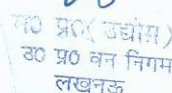 म० प्र०( उद्योग)
उ० प्र० वन निगम
लखनऊ